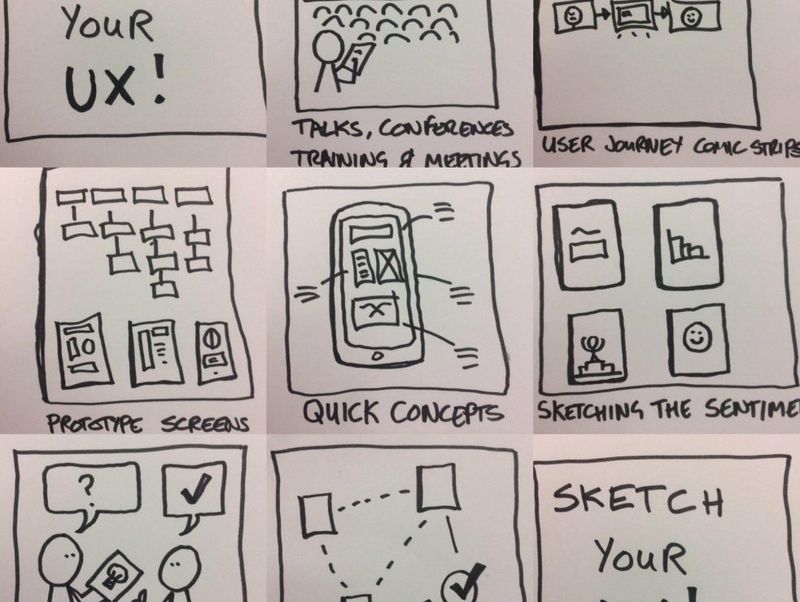 YOUR
UX!
TALKS, CONFERENCES
TRAINING & MEETINGS
USER JOURNEY COMIC STRIPS
PROTOTYPE SCREENS
QUICK CONCEPTS
SKETCHING THE SENTIME
?
SKETCH
YOUR